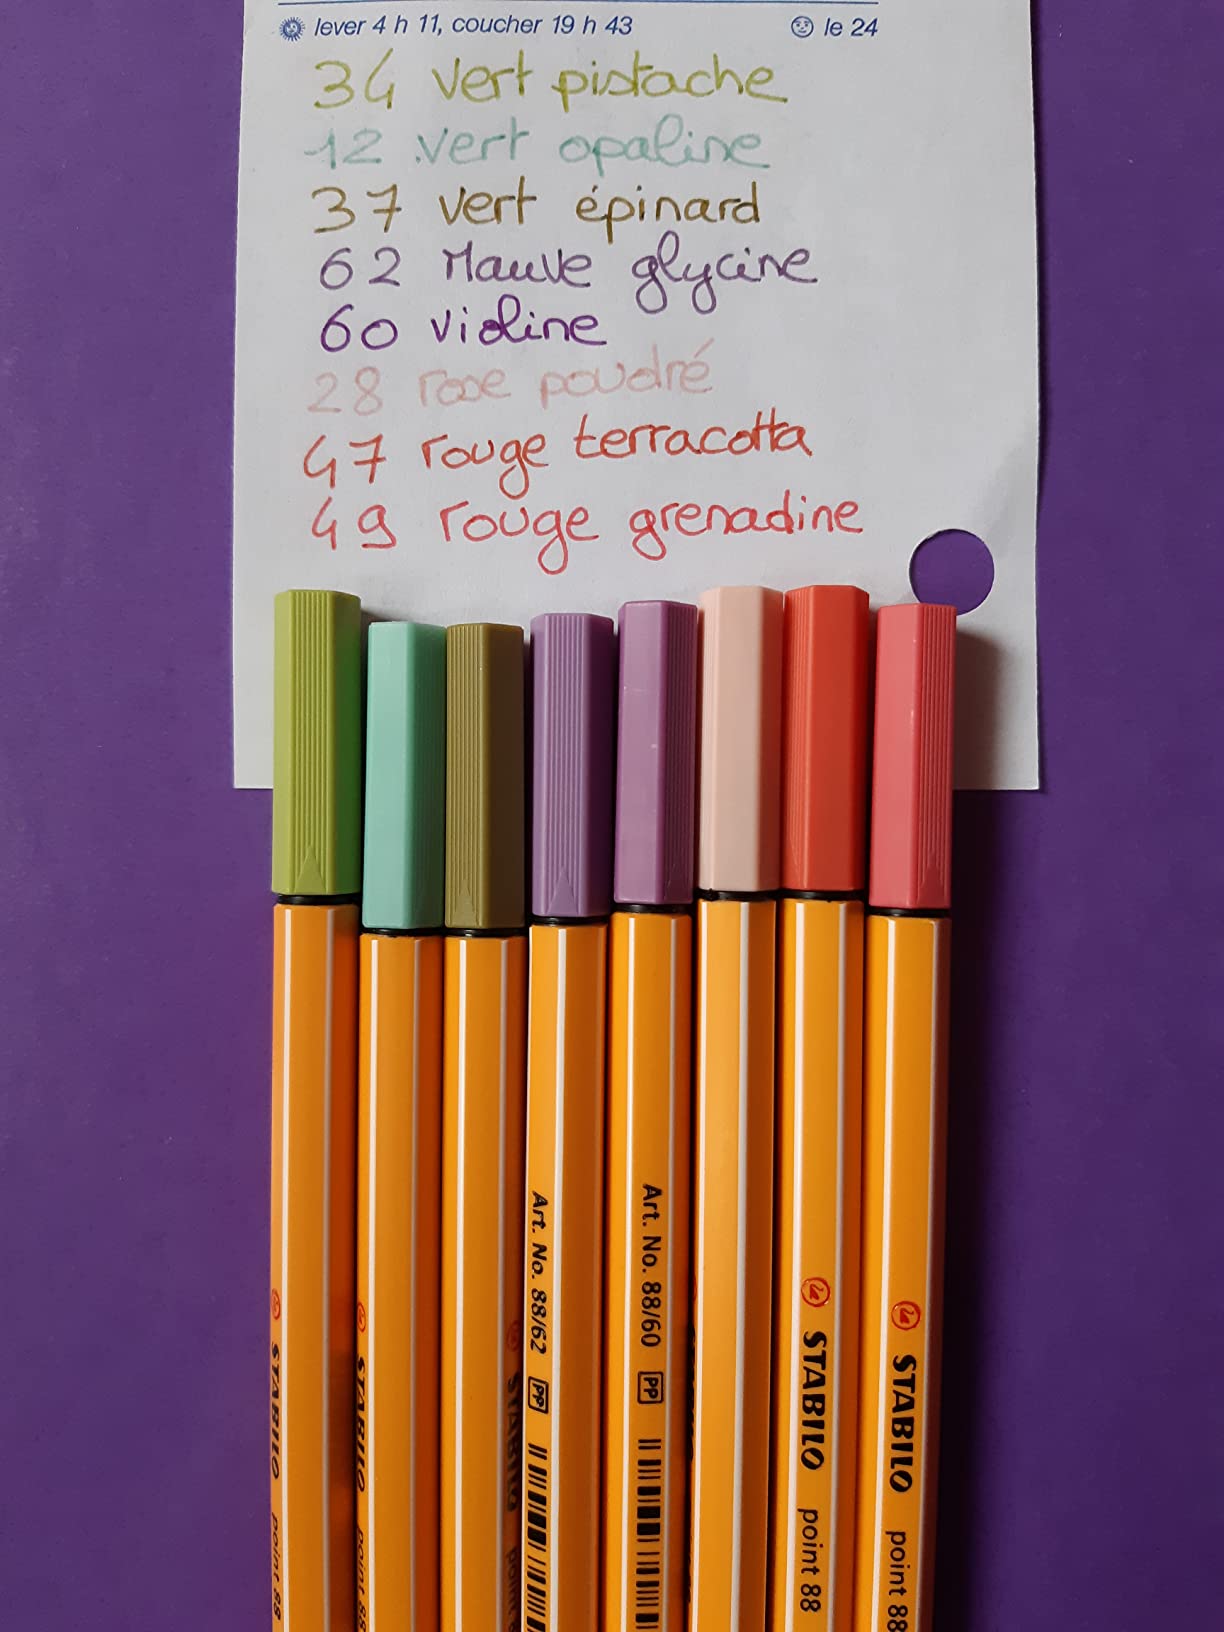 lever 4 h 11, coucher 19 h 43 le 24
34 vert pistache
12 vert opaline
37 vert épinard
62 Mauve glycine
60 violine
28 rose poudré
47 rouge terracotta
49 rouge grenadine
STABILO point 88
STABILO point 88
STABILO point
Art. No. 88/62 PP
Art. No. 88/60 PP
STABILO point 88
STABILO point 88